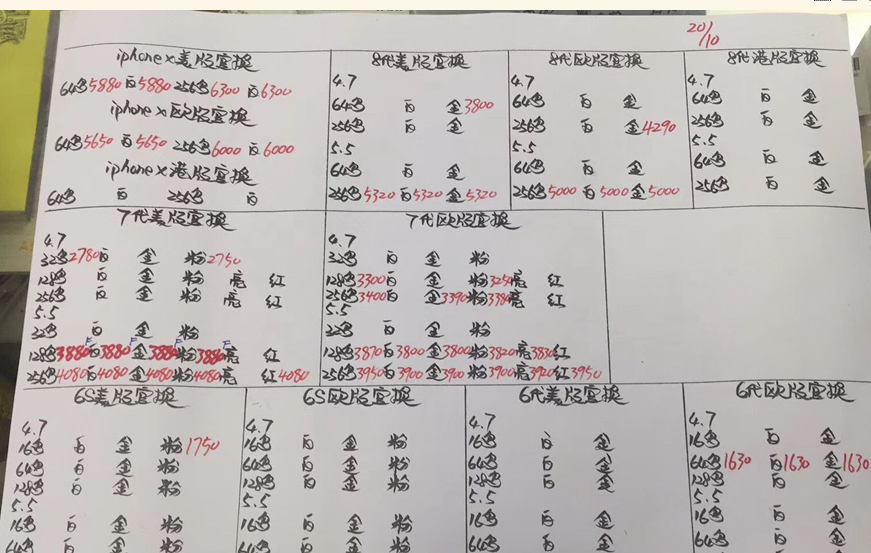 20/10
iphone x美版官换
64黑5880白5880 256黑6300白6300
iphone x欧版官换
64黑5650白5650 256黑6000白6000
iphone x港版官换
64黑 白 256黑 白
8代美版官换
4.7
64黑 白 金3800
256黑 白 金
5.5
64黑 白 金
256黑5320白5320金5320
8代欧版官换
4.7
64黑 白 金
256黑 白 金4290
5.5
64黑 白 金
256黑5000白5000金5000
8代港版官换
4.7
64黑 白 金
256黑 白 金
5.5
64黑 白 金
256黑 白 金
7代美版官换
4.7
32黑2780白 金 粉2750
128黑 白 金 粉 亮 红
256黑 白 金 粉 亮 红
5.5
32黑 白 金 粉
128黑3880F白3880F金3880F粉3880F亮 红
256黑4080白4080金4080粉4080亮 红4080
7代欧版官换
4.7
32黑 白 金 粉
128黑3300白 金 粉3250亮 红
256黑3400白 金3390粉3380亮 红
5.5
32黑 白 金 粉
128黑3870白3800金3800粉3820亮3830红
256黑3950白3900金3900粉3900亮3920红3950
6S美版官换
4.7
16黑 白 金 粉1750
64黑 白 金 粉
128黑 白 金 粉
5.5
16黑 白 金 粉
64黑 白 金 粉
6S欧版官换
4.7
16黑 白 金 粉
64黑 白 金 粉
128黑 白 金 粉
5.5
16黑 白 金 粉
64黑 白 金 粉
6代美版官换
4.7
16黑 白 金
64黑 白 金
128黑 白 金
5.5
16黑 白 金
64黑 白 金
6代欧版官换
4.7
16黑 白 金
64黑1630 白1630 金1630
128黑 白 金
5.5
16黑 白 金
64黑 白 金